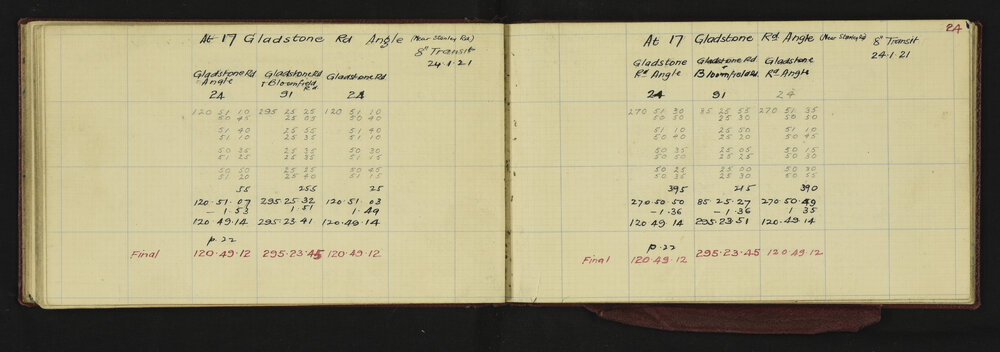 At 17 Gladstone Rd Angle (Near Stanley Rd)
8" Transit
24.1.21
Gladstone Rd Gladstone Rd Gladstone Rd
Angle + Bloomfield Rd
24 91 24
120 51 10 295 25 25 120 51 10
50 45 25 05 50 40
51 40 25 55 51 40
51 10 25 35 51 10
50 35 25 35 50 30
51 25 25 35 51 15
50 50 25 25 50 45
51 20 25 40 51 15
55 255 25
120.51.07 295.25.32 120.51.03
-1.53 1.51 1.49
120.49.14 295.23.41 120.49.14
p.22
Final 120.49.12 295.23.45 120.49.12
24
At 17 Gladstone Rd Angle (Near Stanley Rd)
8" Transit
24.1.21
Gladstone Gladstone Rd Gladstone
Rd Angle + Bloomfield Rd Rd Angle
24 91 24
270 51 30 85 25 55 270 51 35
50 50 25 30 50 55
51 10 25 50 51 10
50 40 25 20 50 45
50 35 25 05 50 15
50 50 25 25 50 30
50 25 25 00 50 30
50 35 25 30 50 55
395 215 390
270.50.50 85.25.27 270.50.49
-1.36 -1.36 1 35
120.49.14 295.23.51 120.49.14
p.22
Final 120.49.12 295.23.45 120.49.12